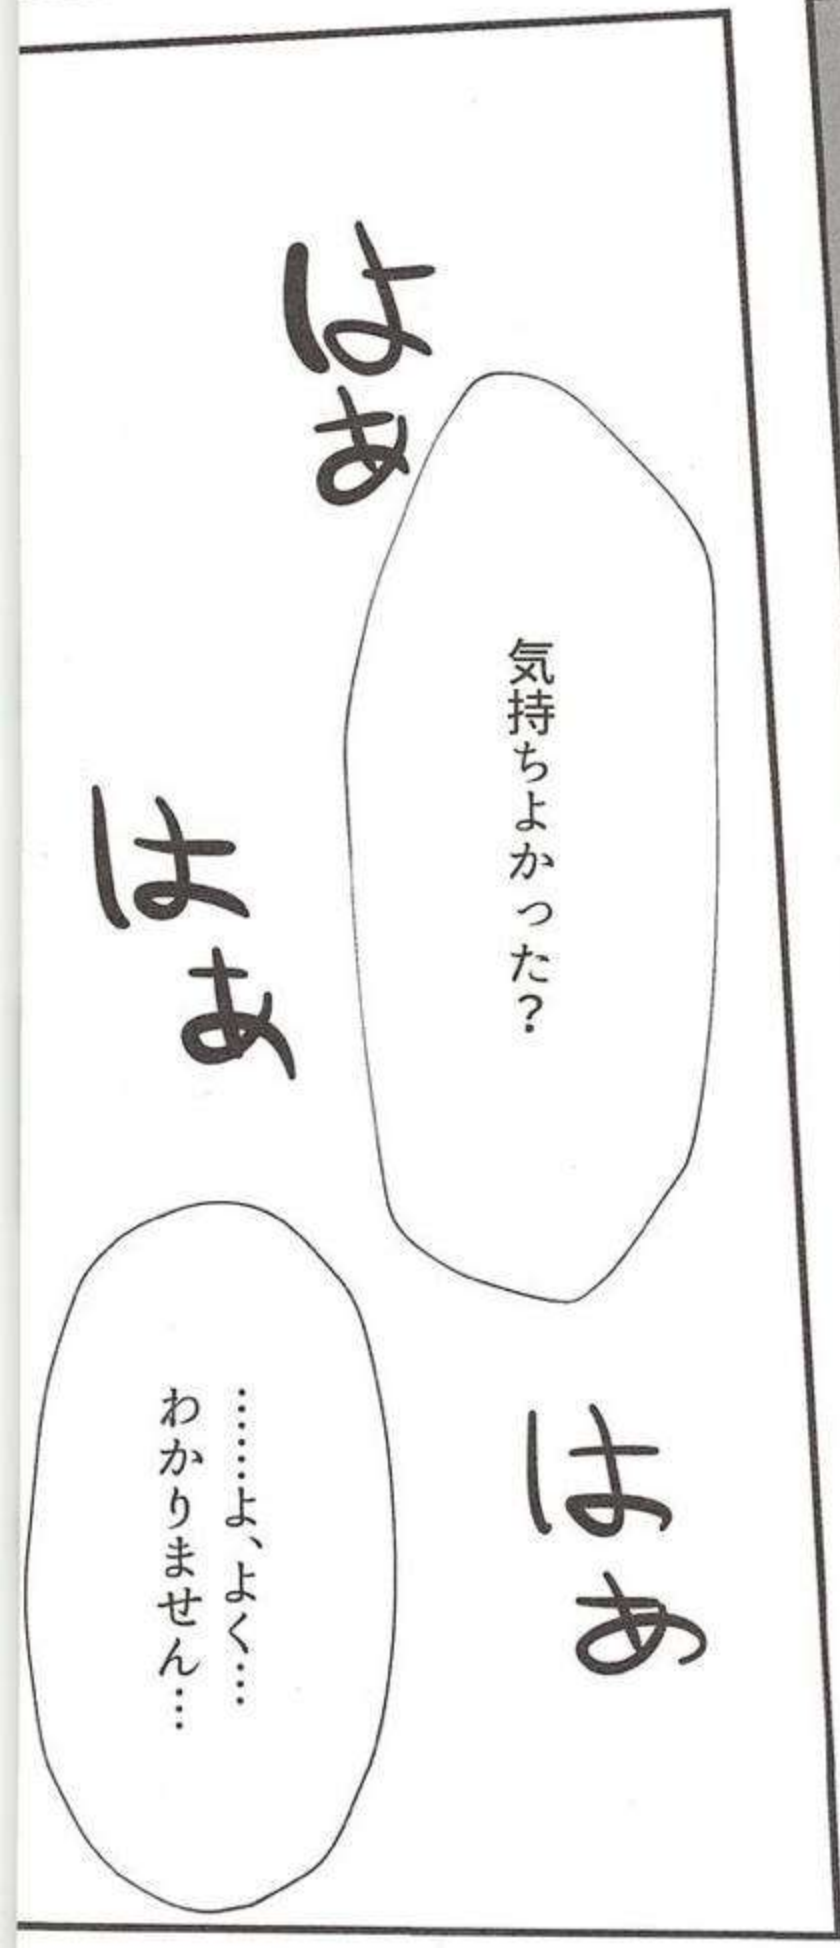 はぁ
気持ちよかった？
はぁ
はぁ
………よ、よく…
わかりません…